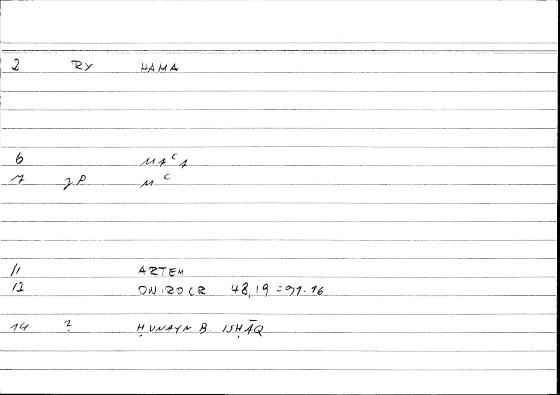 2 RY HAMA
6 M A C A
7 γP M C
11 ARTEM
12 ONIROCR 48,19 = 91.16
14 ? ḤUNAYN B. ISḤĀQ